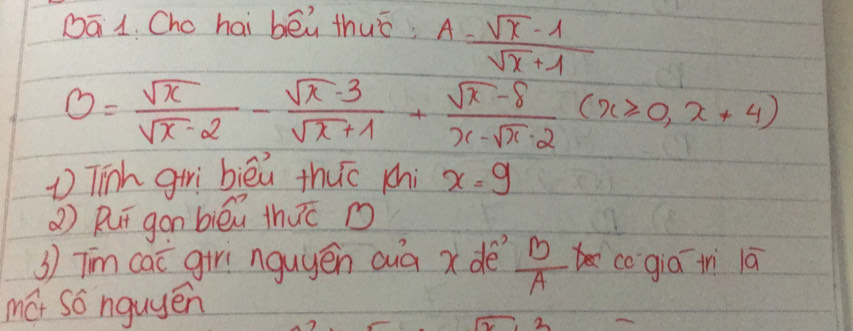 Bài 1. Cho hai biểu thức: A = (√x - 1)/(√x + 1)
B = √x/(√x - 2) - (√x - 3)/(√x + 1) + (√x - 8)/(x - √x - 2) (x ≥ 0, x ≠ 4)
1) Tính gtrị biểu thức khi x = 9
2) Rút gọn biểu thức B
3) Tìm các gtrị nguyên của x để B/A có giá trị là
một số nguyên